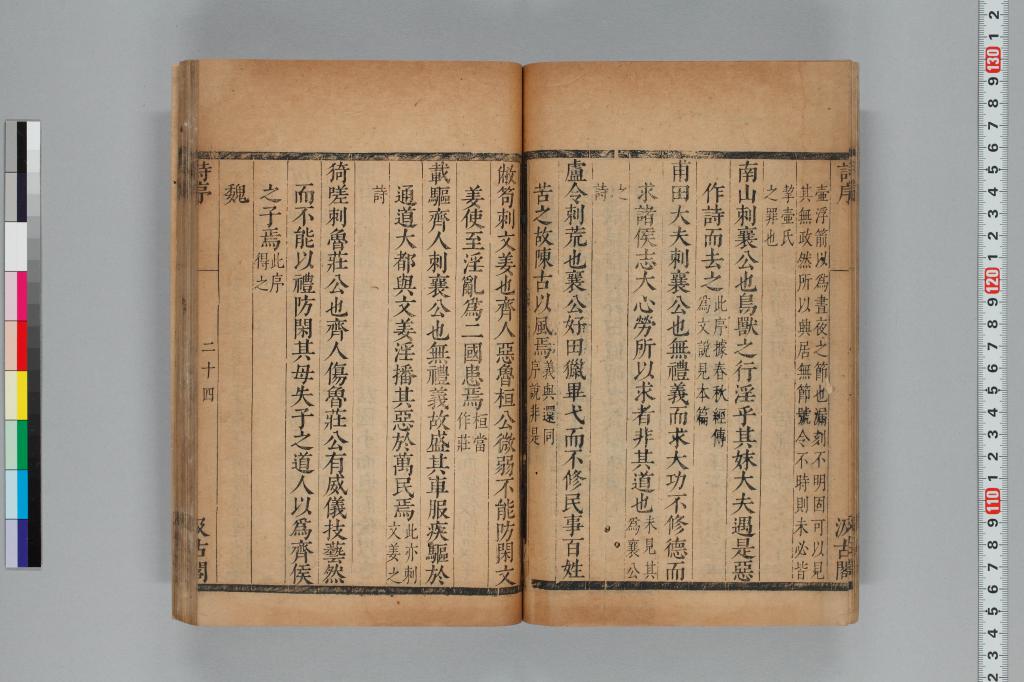 詩序
汲古閣
壷浮箭以爲晝夜之節也漏刻不明固可以見
其無政然所以興居無節號令不時則未必皆
挈壷氏
之罪也
南山刺襄公也鳥獸之行淫乎其妹大夫遇是惡
作詩而去之此序據春秋經傳
爲文說見本篇
甫田大夫刺襄公也無禮義而求大功不修德而
求諸侯志大心勞所以求者非其道也未見其
爲襄公
之
詩
盧令刺荒也襄公好田獵畢弋而不修民事百姓
苦之故陳古以風焉義與還同
序說非是
敝笱刺文姜也齊人惡魯桓公微弱不能防閑文
姜使至淫亂爲二國患焉桓當
作莊
載驅齊人刺襄公也無禮義故盛其車服疾驅於
通道大都與文姜淫播其惡於萬民焉此亦刺
文姜之
詩
猗嗟刺魯莊公也齊人傷魯莊公有威儀技藝然
而不能以禮防閑其母失子之道人以爲齊侯
之子焉此序
得之
魏
詩序
二十四
汲古閣